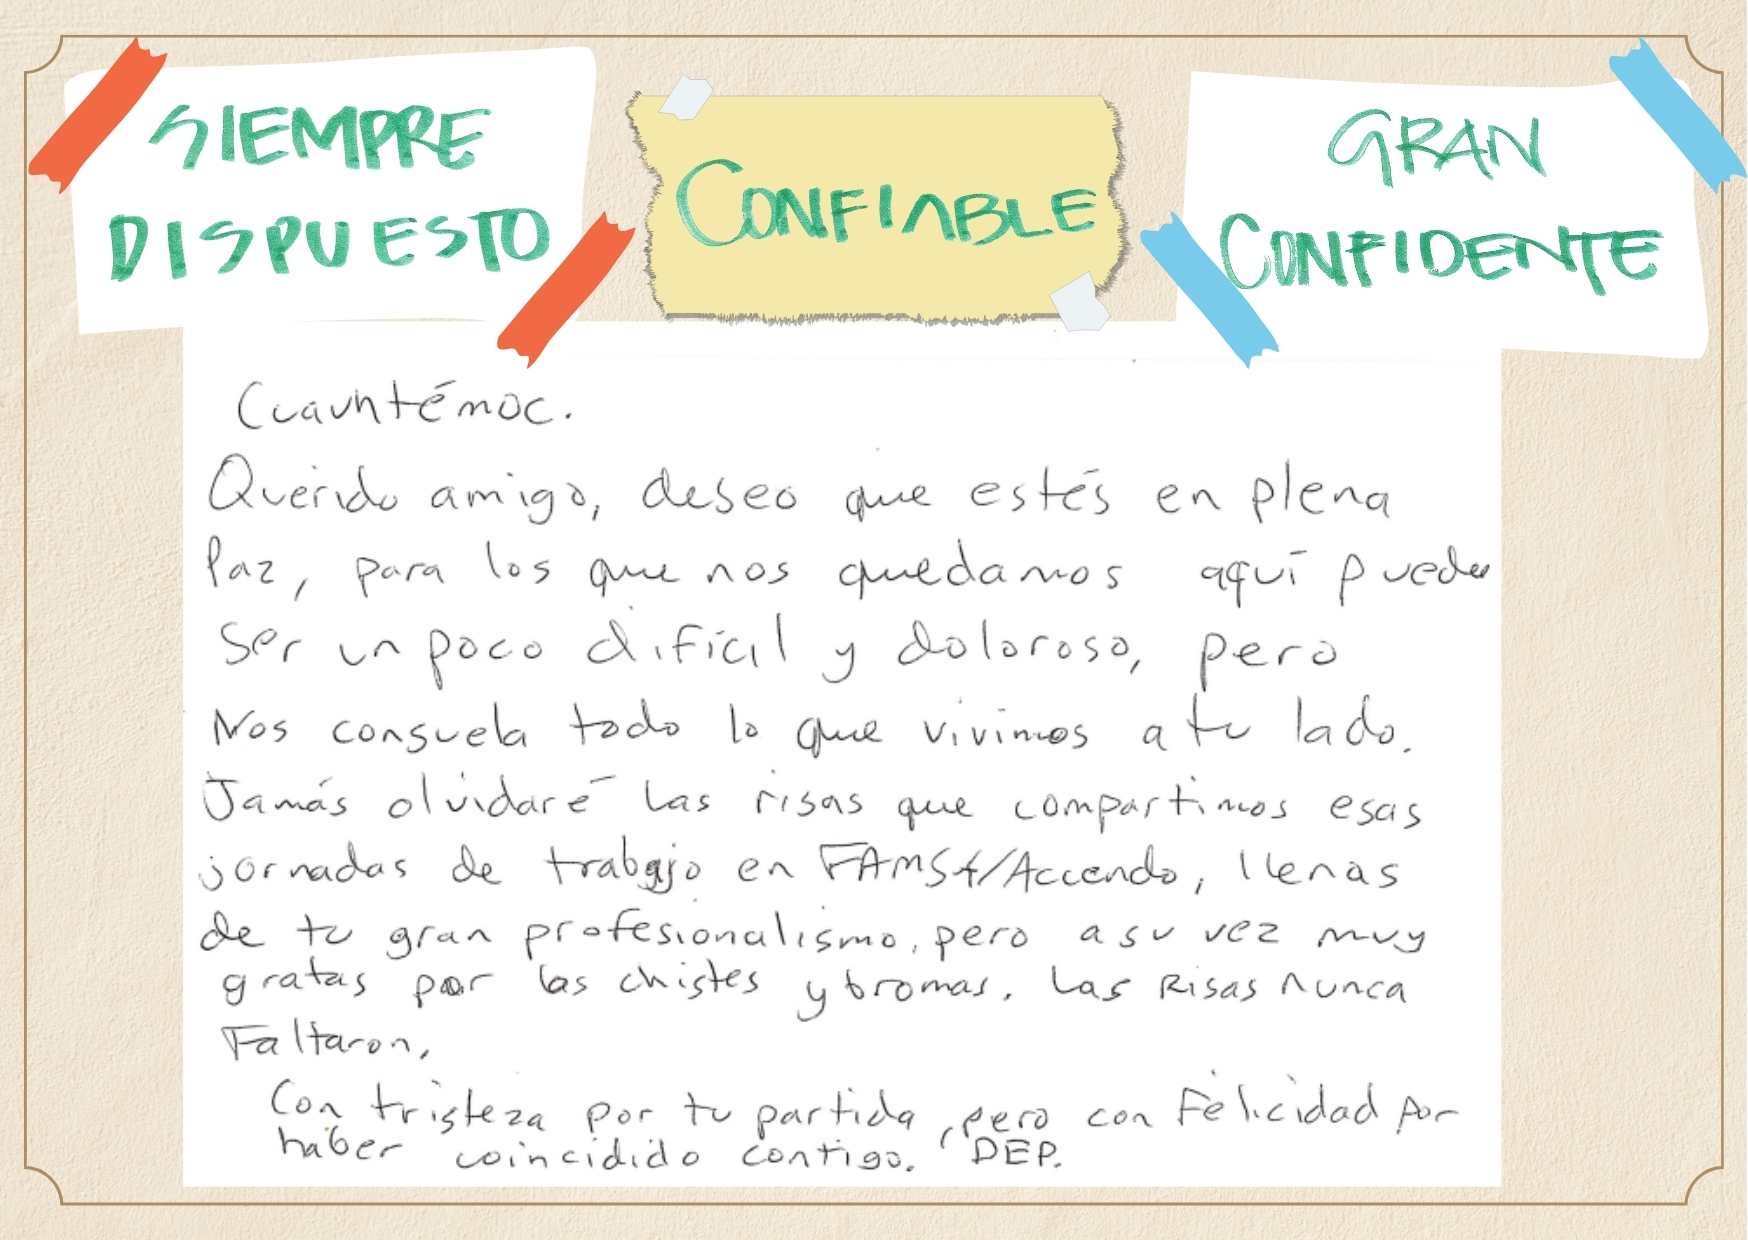 SIEMPRE
DISPUESTO
CONFIABLE
GRAN
CONFIDENTE
Cuauhtémoc.
Querido amigo, deseo que estés en plena
Paz, para los que nos quedamos aquí puede
Ser un poco difícil y doloroso, pero
Nos consuela todo lo que vivimos a tu lado.
Jamás olvidaré las risas que compartimos esas
jornadas de trabajo en FAMSA/Accendo, llenas
de tu gran profesionalismo, pero a su vez muy
gratas por los chistes y bromas. Las Risas nunca
Faltaron.
Con tristeza por tu partida, pero con Felicidad por
haber coincidido contigo. DEP.